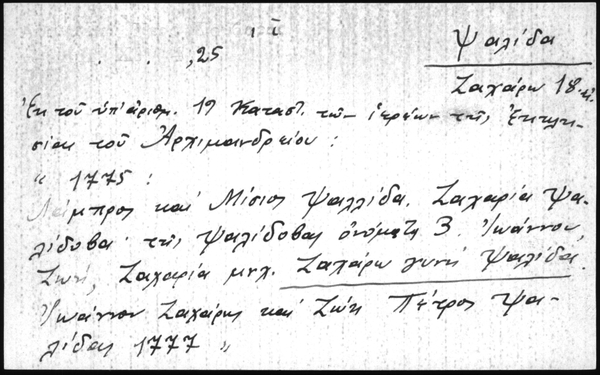 ,25
Ψαλίδα
Ζαχάρω 18.
Ἐκ τοῦ ὑπ' ἀριθμ. 19 Καταστ. τῶν ἱερέων τῆς Ἐκκλη-
σίας τοῦ Ἀρχιμανδρείου :
" 1775 :
Λάμπρος καὶ Μίσιος Ψαλλίδα. Ζαχαρία Ψα-
λίδοβα τῆς Ψαλίδοβας ὀνόματα 3. Ἰωάννου,
Ζωή, Ζαχαρία μνχ. Ζαχάρω γυνή Ψαλίδα.
Ἰωάννου Ζαχάρως καὶ Ζώη Πέτρος Ψα-
λίδας 1777 "